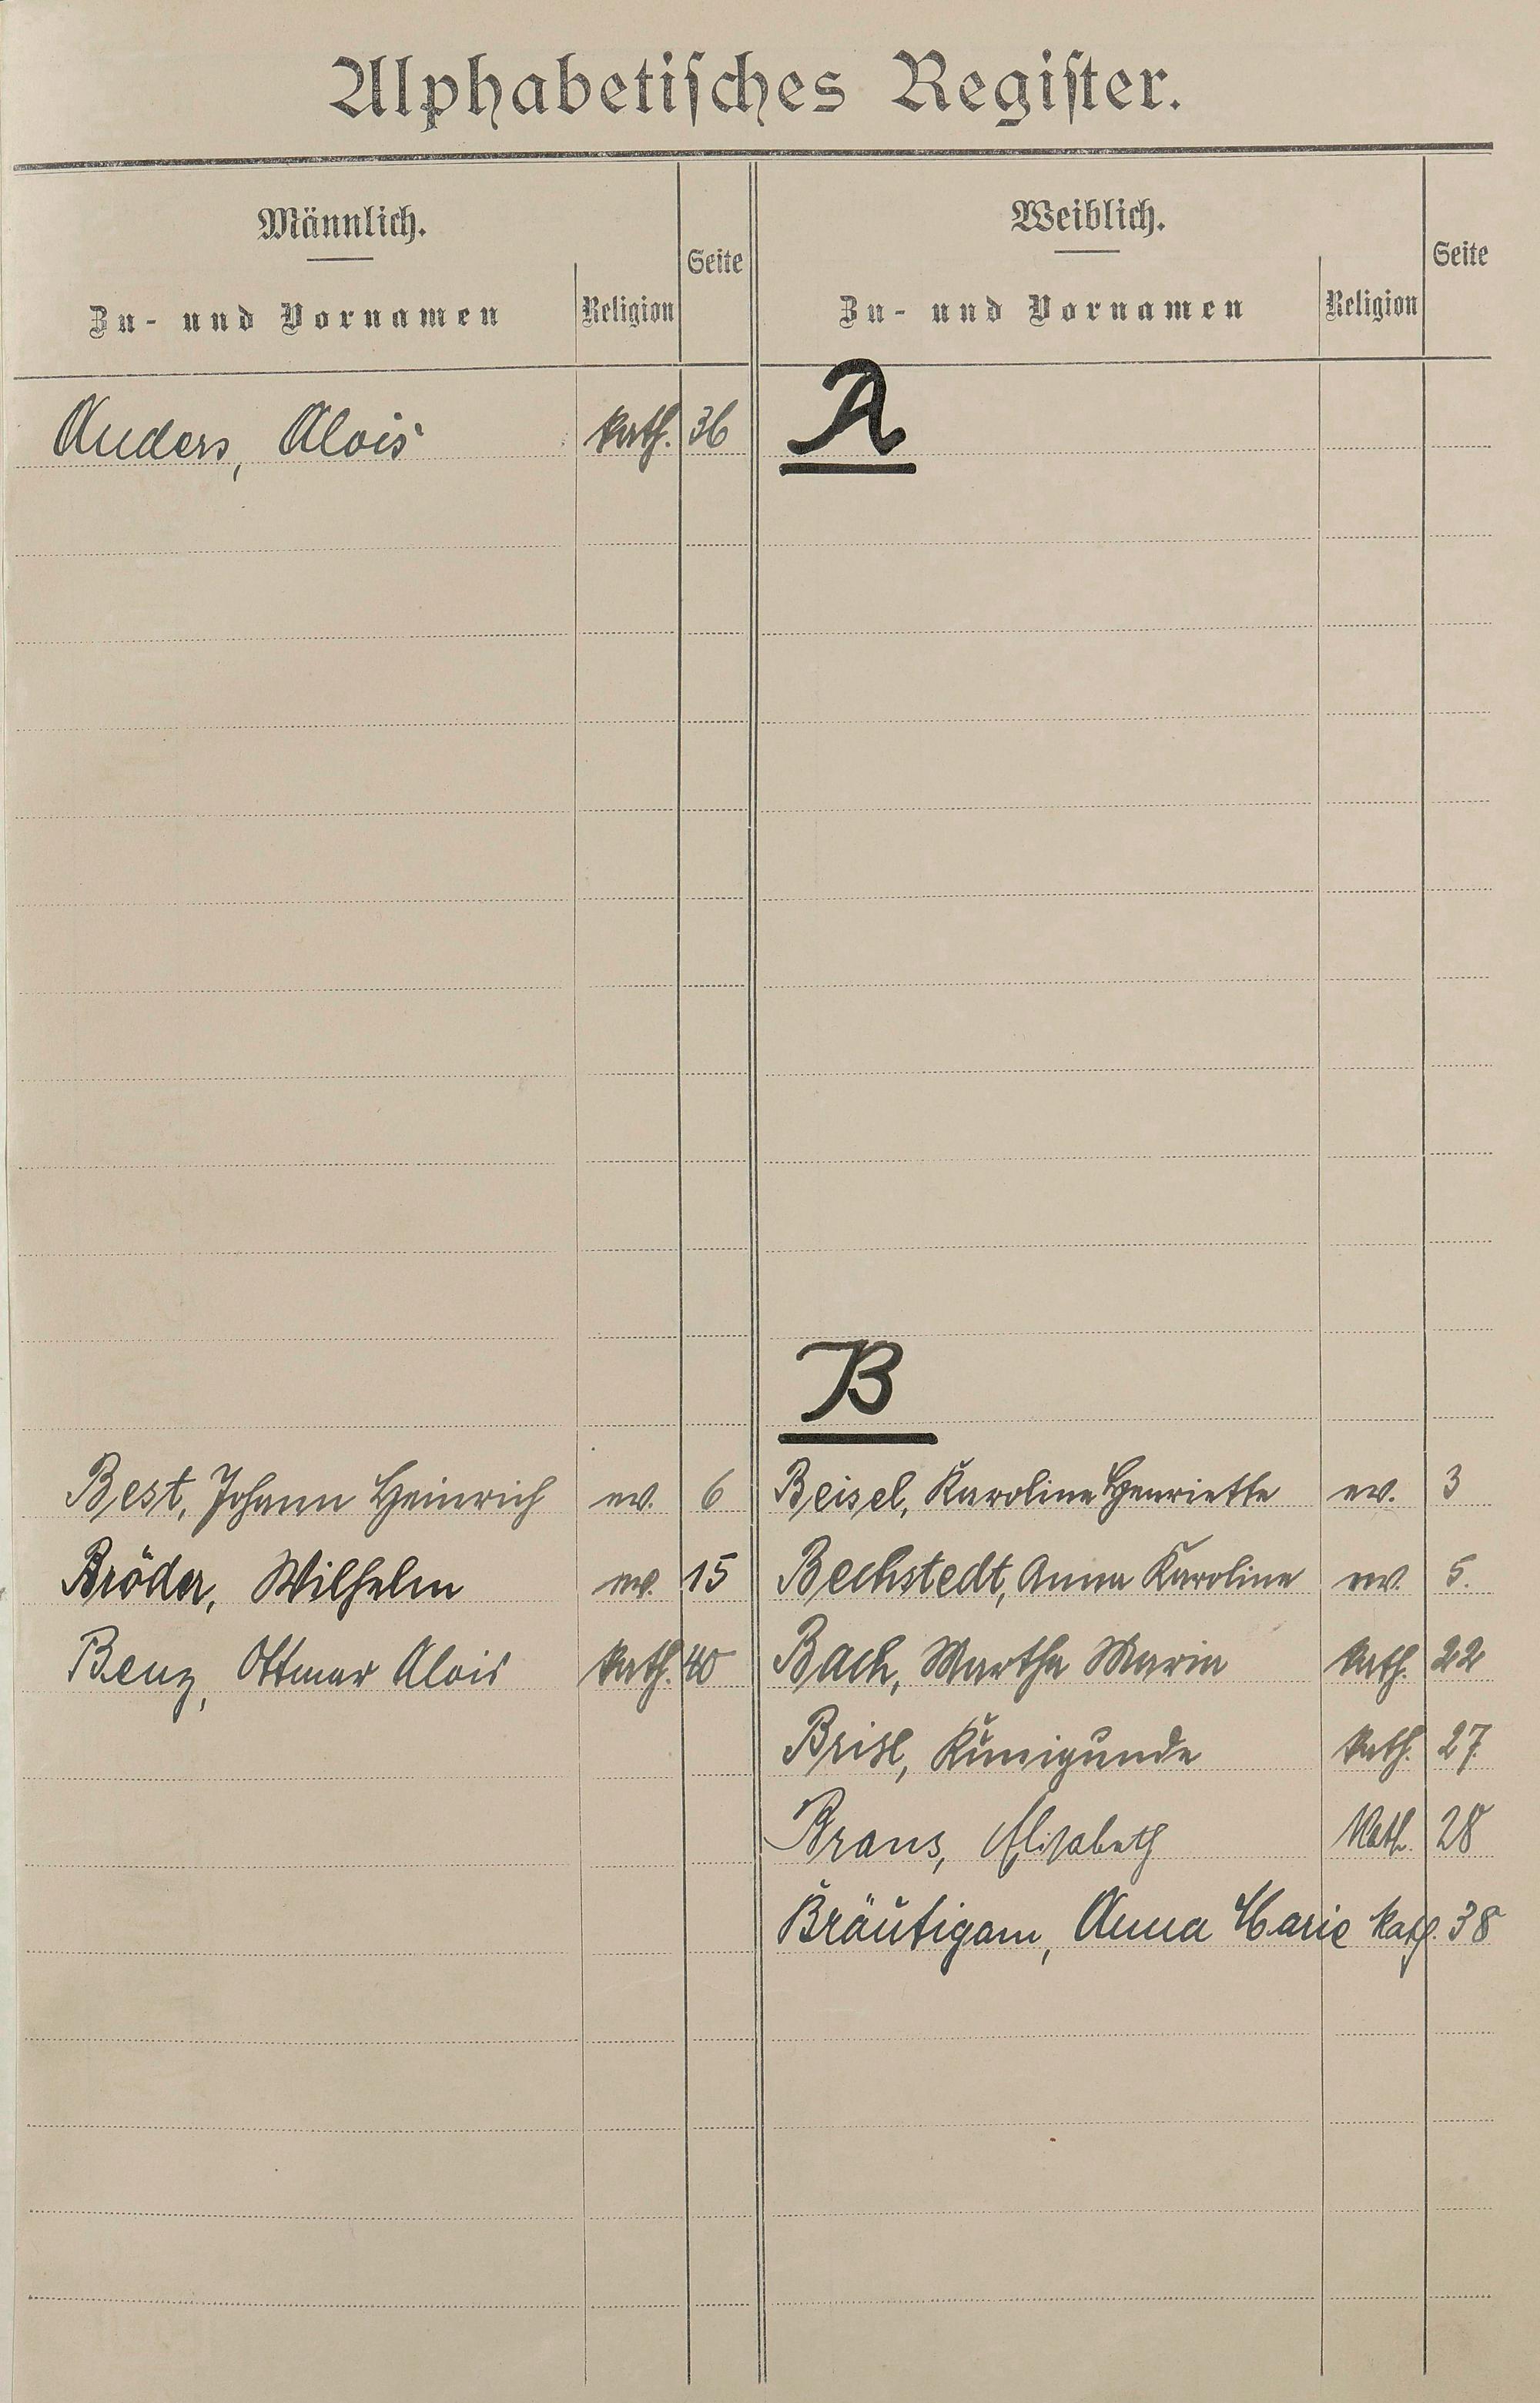 Alphabetisches Register.
Männlich.
Zu- und Vornamen
Religion
Seite
Weiblich.
Zu- und Vornamen
Religion
Seite
A
Anders, Alois kath. 36
B
Best, Johann Heinrich ev. 6
Beisel, Karoline Henriette ev. 3
Bröder, Wilhelm ev. 15
Bechstedt, Anna Karoline ev. 5.
Benz, Ottmar Alois kath. 40
Bach, Martha Maria kath. 22
Brisl, Kunigunde kath. 27
Brans, Elisabeth Kath. 28
Bräutigam, Anna Marie kath. 38